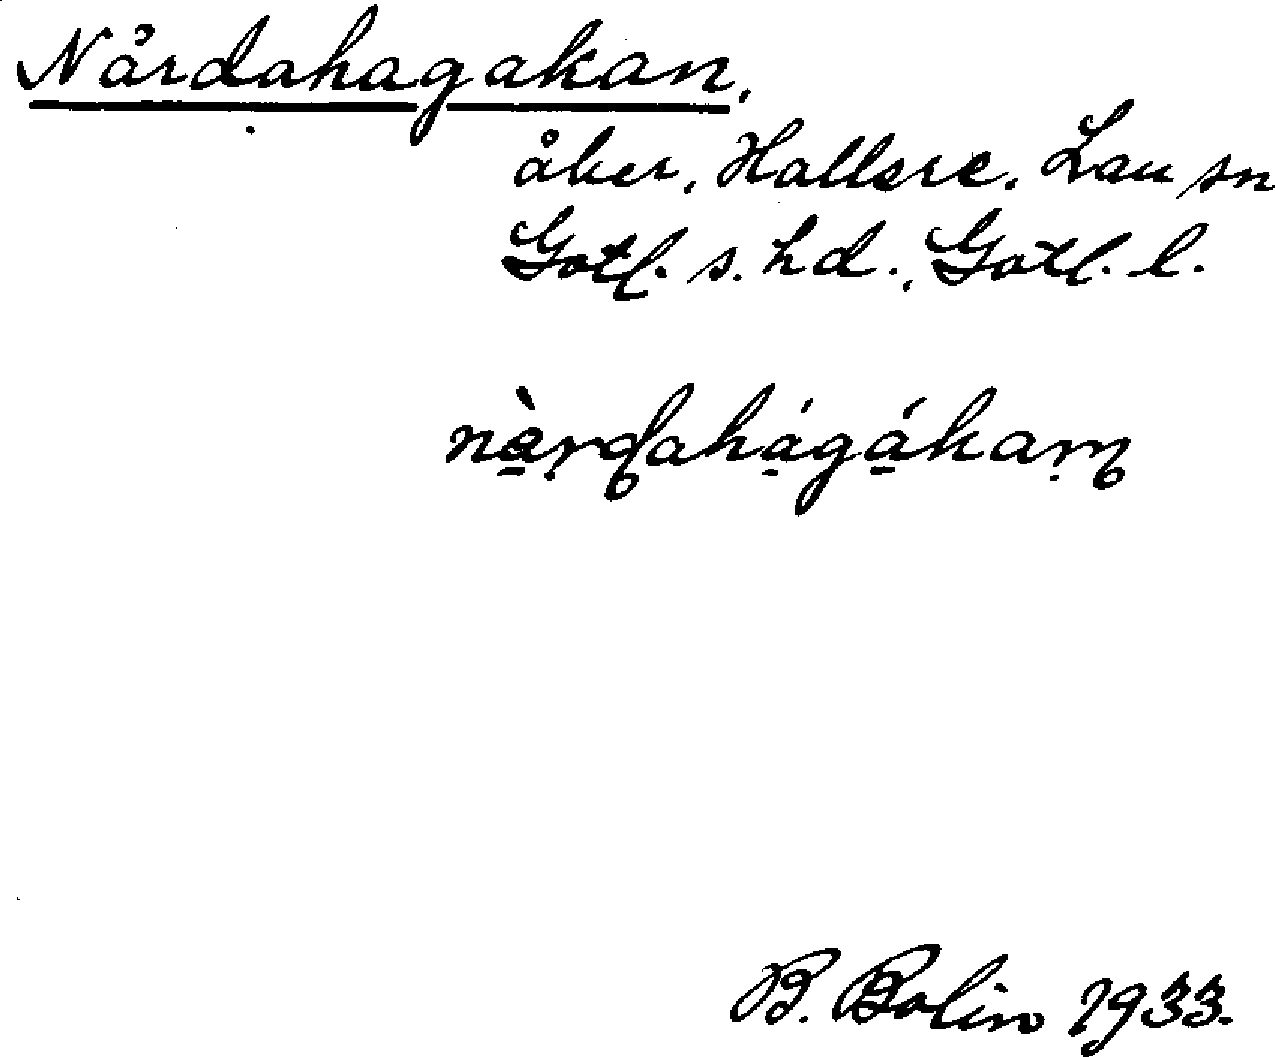 Nårdahagakan,
åker, Hallsre. Lau sn
Gotl. s. hd., Gotl. l.
nàrdahágákan
B. Bolin 1933.